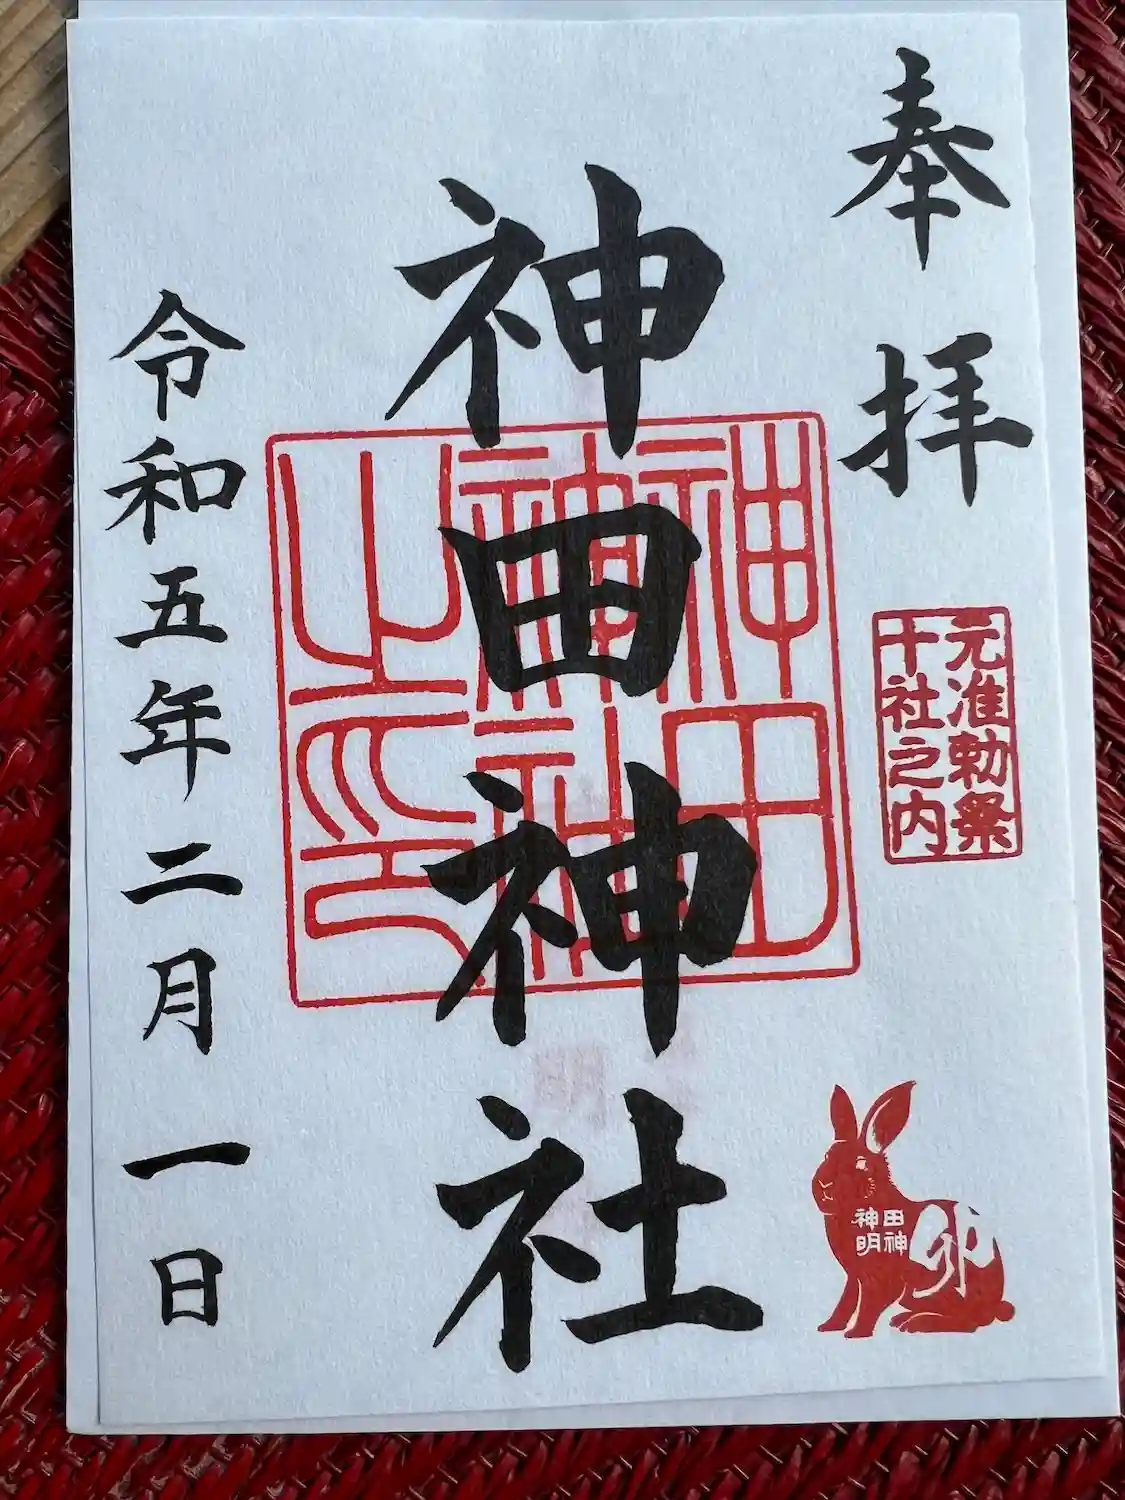 奉拝
元准勅祭
十社之内
神田神社
神田神社之印
田神
神明
卯
令和五年二月一日